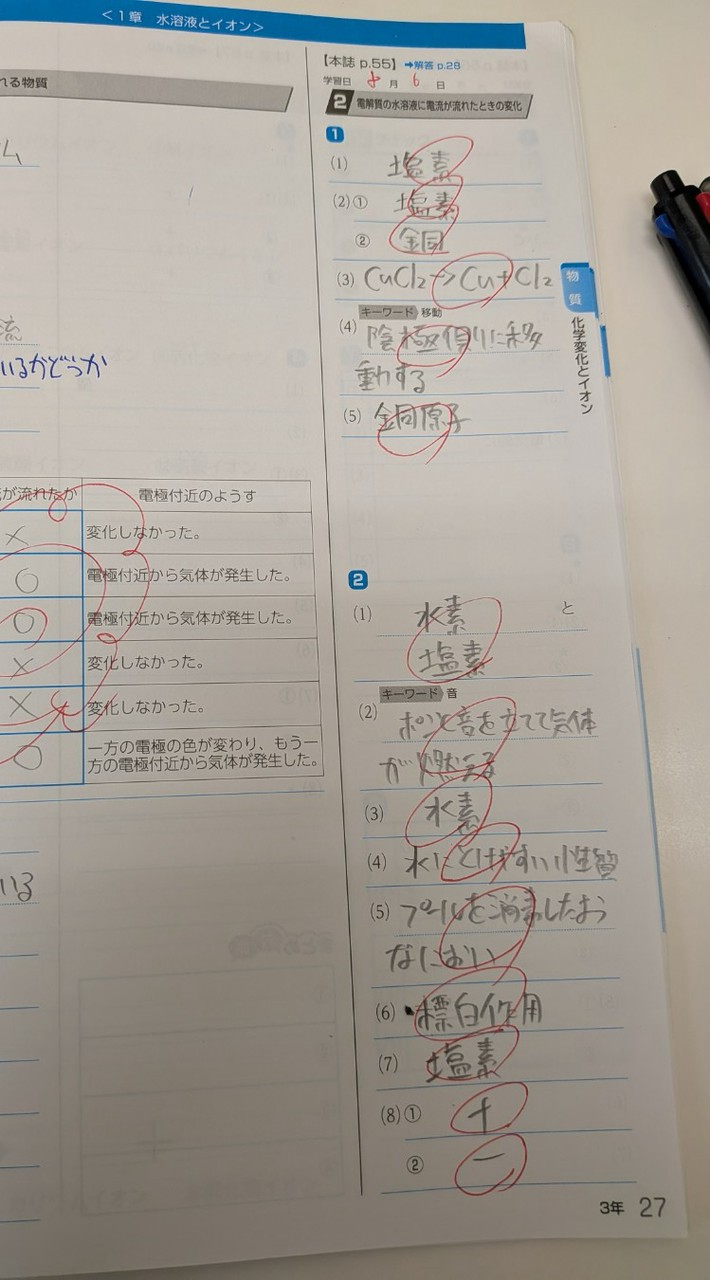 <1章 水溶液とイオン>
れる物質
ム
流
いるかどうか
が流れたか 電極付近のようす
× 変化しなかった。
○ 電極付近から気体が発生した。
○ 電極付近から気体が発生した。
× 変化しなかった。
× 変化しなかった。
○ 一方の電極の色が変わり、もう一
方の電極付近から気体が発生した。
いる
【本誌 p.55】 ➡解答 p.28
学習日 8月6日
2 電解質の水溶液に電流が流れたときの変化
1
(1) 塩素
(2)① 塩素
② 銅
(3) CuCl2→Cu+Cl2
キーワード 移動
(4) 陰極側に移
動する
(5) 銅原子
2
(1) 水素 と
塩素
キーワード 音
(2) ポンと音を立てて気体
が燃える
(3) 水素
(4) 水にとけやすい性質
(5) プールを消毒したよう
なにおい
(6) 標白作用
(7) 塩素
(8)① +
② −
物質
化学変化とイオン
3年 27